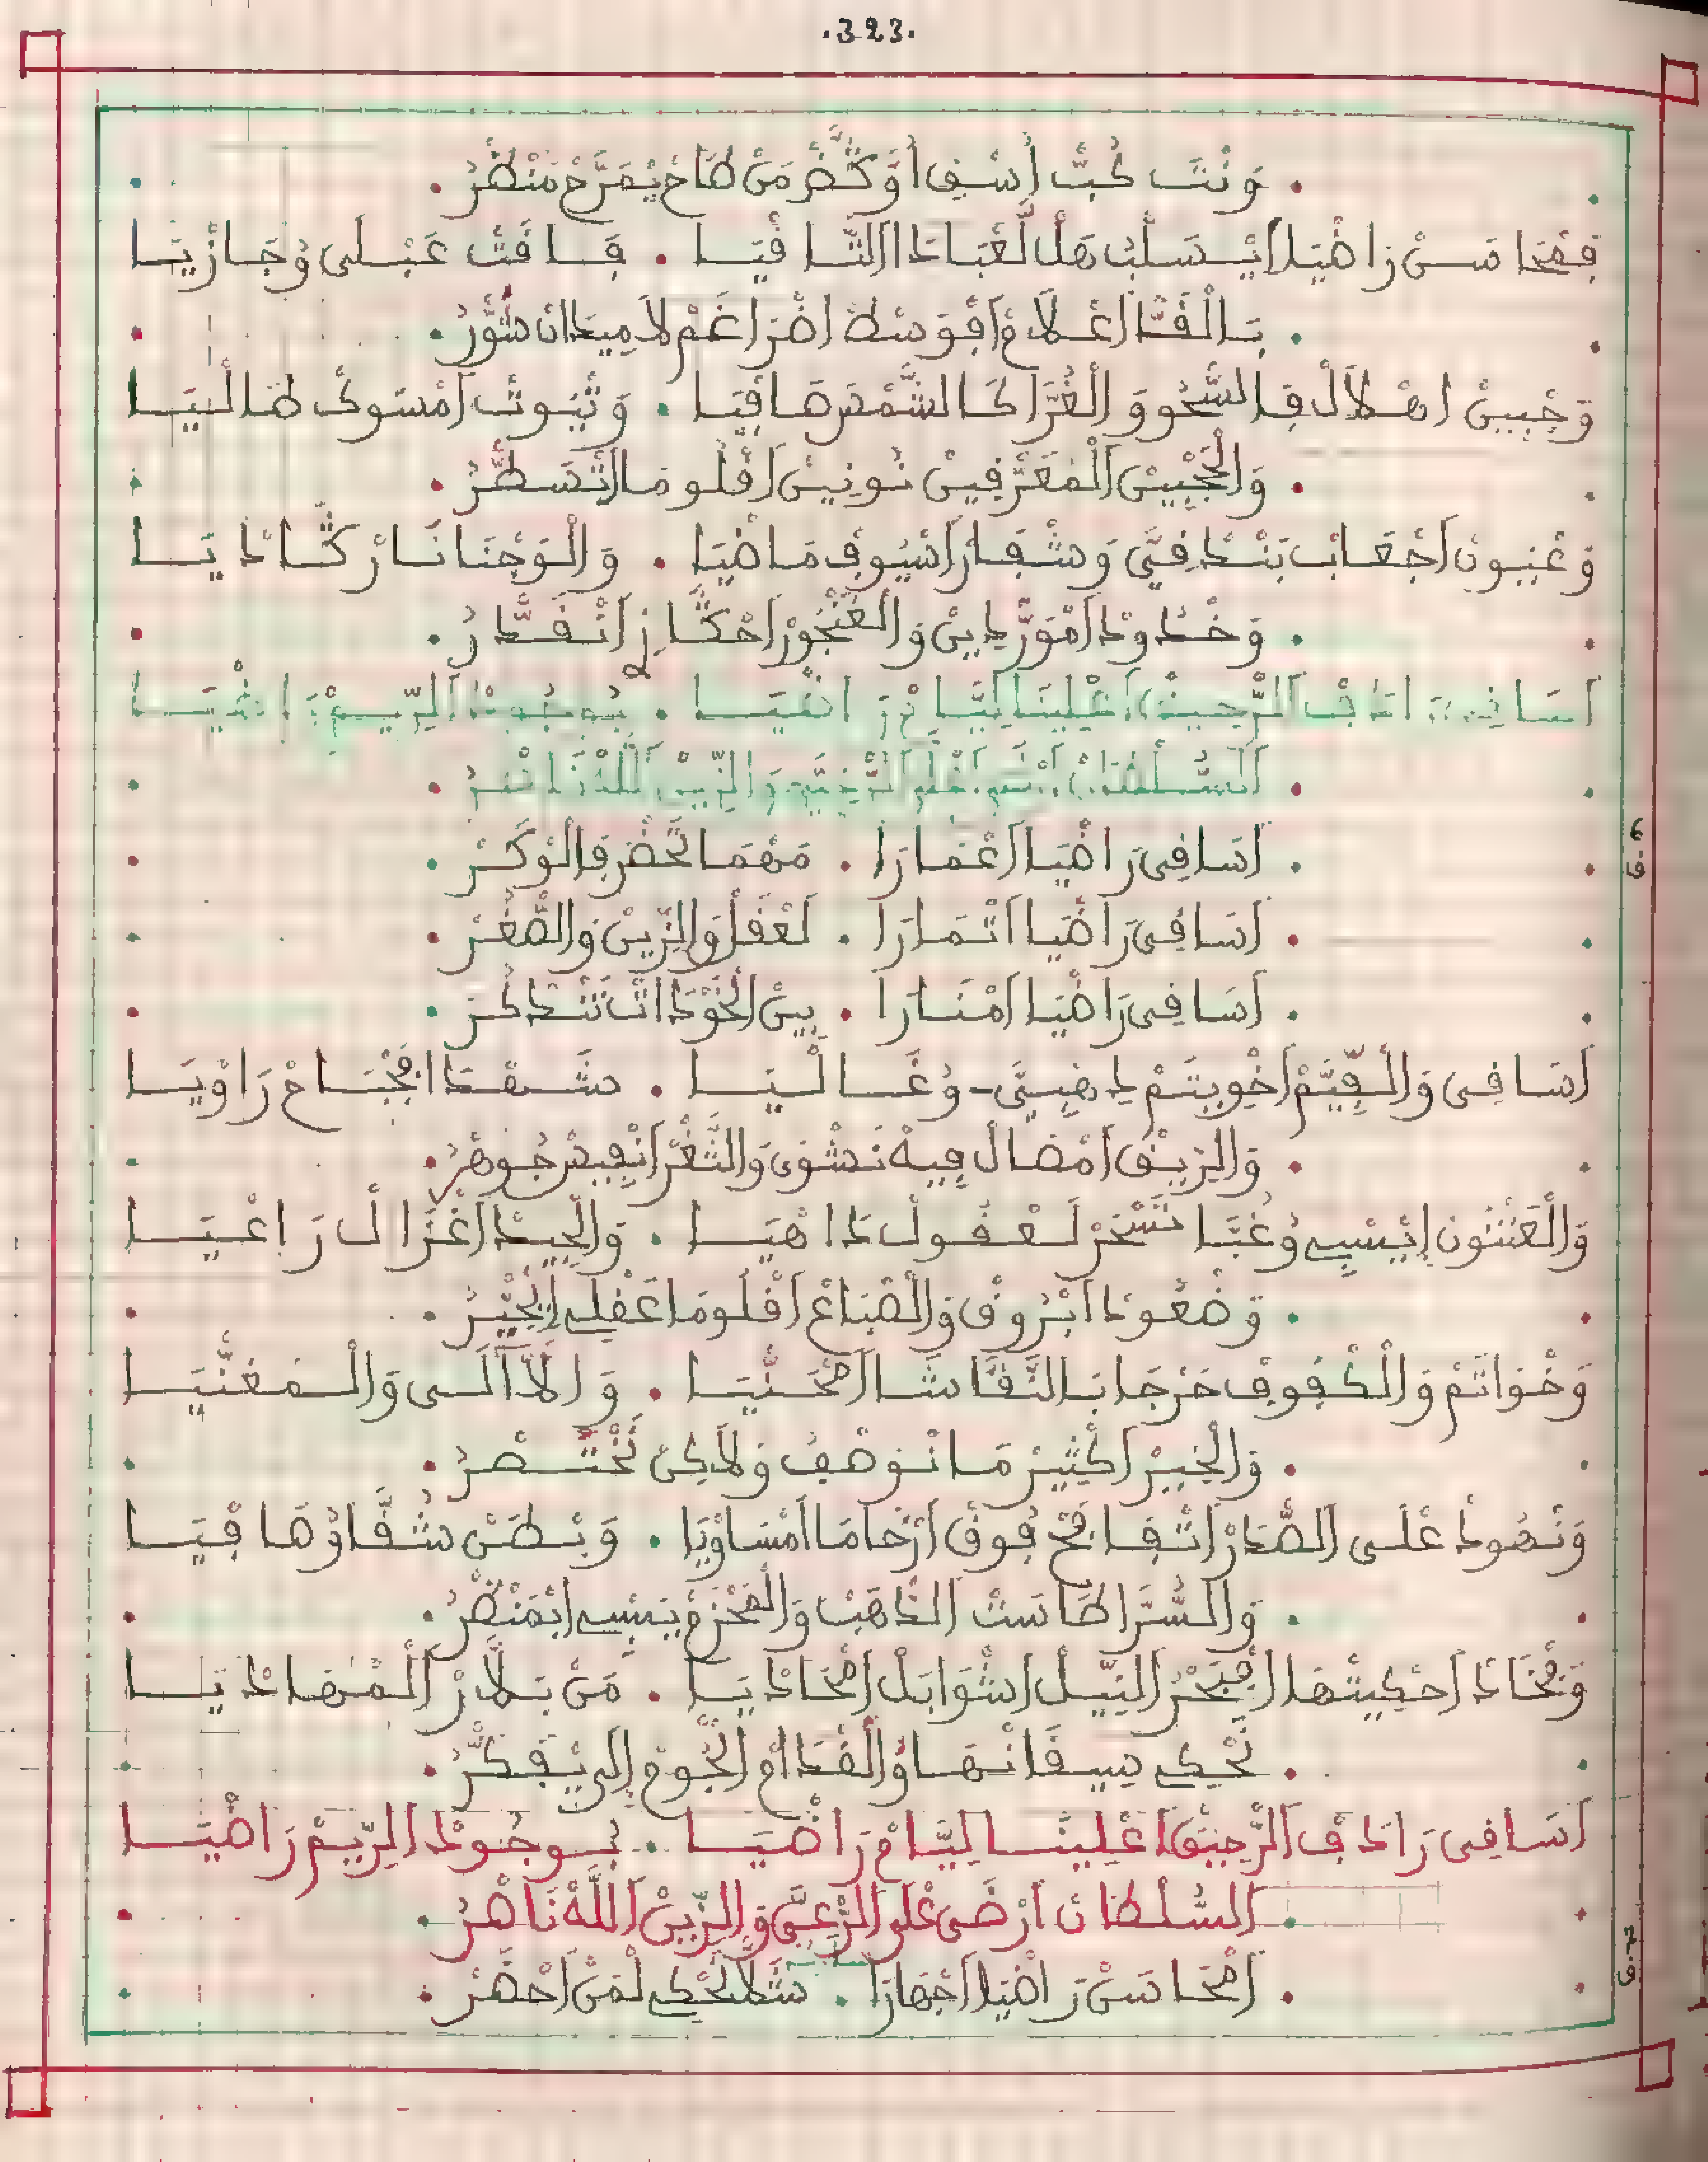 .323.
وَنْتَ كُبّْ أسْقِي أوَكْتَّضْ مَنْ طَاحْ يْمَرَّحْ مَنْضَرُ
فِمْحَاسَنْ رَاضْيَا اَيْسَلْبُ هَلْ لَعْبَادَا التَّاقْيَا . فَاقَتْ عَبْلَى وُجَازْيَا
بَالْقَدّْ اَعْلَامْ اَفْوَسْطْ اضْرَاغَمْ لَامِيدَانْ شَوَّرُ
وَجْبِينْ اهْلَالْ فَالصَّحُو وَالْغُرَّا كَالشَّمْسْ صَافْيَا . وَتْيُوثْ اَمْسَوكْ طَالْيَا
وَالْحَجْبِينْ اَلْمَعَرْقِينْ نُونِينْ اَقْلُومَا اتْسَطَّرُ
وَعْيُونْ اَجْعَابْ بَنْدْقِيَّ وَشْفَارْ اَسْيُوفْ مَاضْيَا . وَالْوَجْنَا نَارْ كَدَّادْيَا
وَخْدُودْ اَمْوَرّْدِينْ وَالْغَنْجُورْ اَحْكَّازْ اَنْقَدَّرُ
اَسَاقِي رَادَفْ اَلرّْحِيقْ اَعْلِينَا لِيَّامْ رَاضْيَا . بُوجُودْ اَلرِّيمْ رَاضْيَا
اَلسُّلْطَانْ اَرْضَى عْلَى الرَّعِيَّ وَالزِّينْ اَللَّهْ نَاصْرُ
ق 6
اَسَاقِي رَاضْيَا اَعْمَارَا . مَهْمَا تَحْضَرْ فَالْوْكَرْ
اَسَاقِي رَاضْيَا اَتْمَارَا . لَعْقَلْ وَالزِّينْ وَالصّْغَرْ
اَسَاقِي رَاضْيَا اَمْنَارَا . بِينْ الْخَوْدَاتْ تَنْدْكَرْ
اَسَاقِي وَالْفِيَّمْ اَخْوِيتَمْ دِهْبِيَّ وُغَالْيَا . شَهْدَا ابْجْبَاحْ رَاوْيَا
وَالرِّيقْ اَمْصَالْ فِيهْ نَشْوَى وَالثَّغْرْ اَنْفِيسْ جُوهْرُ
وَالْعَثْنُونْ اِيْسْبِي وُغُبَّا تَسْحَرْ لَعْقُولْ دَاهْيَا . وَالْجِيدْ اَغْزَالْ رَاعْيَا
وَضْعُودْ اَبْرُوقْ وَالصّْبَاعْ اَقْلُومَا عَقْلِي اتْحَيَّرُ
وَخْوَاتَمْ وَالْكْفُوفْ حَرْجَا بَالنَّقَّاشَا اَمْحَنّْيَا . وَالْآلَى وَالْمَغَنّْيَا
وَالْخِيرْ اَكْثِيرْ مَا نْوَصْفُ وَلَاكِنْ نَخْتَصْرُ
وَنْهُودْ عْلَى الصّْدَرْ اَتْفَافَحْ فُوقْ اَرْخَامَا اَمْسَاوْيَا . وَبْطَنْ شُقَّا وُصَافْيَا
وَالسُّرَّا طَاسَتْ الذّْهَبْ وَالْمَحْزَمْ يَسْبِي ابْمَنْضَرُ
وَفْخَادْ اَحْكِيتْهَا ابْبَحْرْ النِّيلْ اشْوَابَلْ اَمْحَادْيَا . مَنْ بَلَّارْ اَلْمْهَادْيَا
تَحْكِي سِيقَانْهَا وُالْقْدَامْ الْخُوخْ اِلَى يْفَكَّرُ
اَسَاقِي رَادَفْ اَلرّْحِيقْ اَعْلِينَا لِيَّامْ رَاضْيَا . بُوجُودْ اَلرِّيمْ رَاضْيَا
اَلسُّلْطَانْ اَرْضَى عْلَى الرَّعِيَّ وَالزِّينْ اَللَّهْ نَاصْرُ
اَمْحَاسَنْ رَاضْيَا اَجْهَارَا . شَلَّا نَحْكِي لْمَنْ اَحْضَرْ